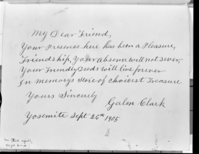 My Dear Friend,
Your Presence here has been a Pleasure,
Friendship, Your absence will not sever
Your friendly deeds will live forever
In memory's store of choicest Treasure
Yours Sincerely
Galen Clark
Yosemite Sept 26th 1905